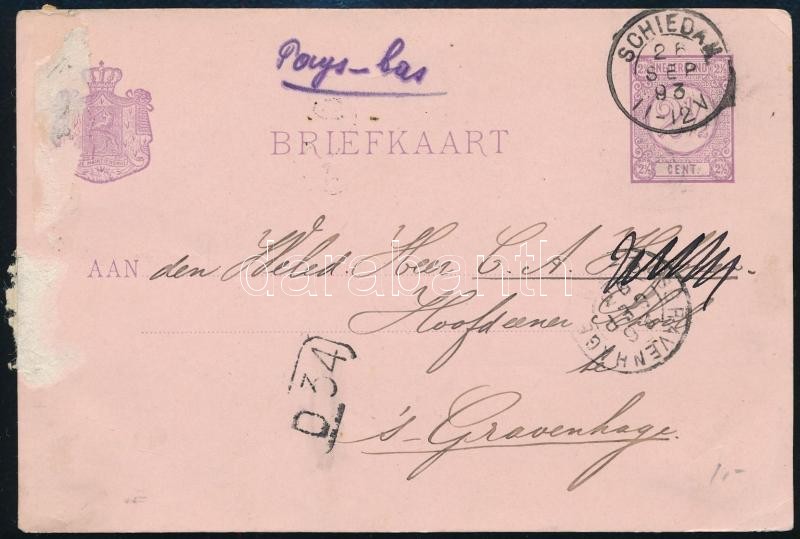 Pays-bas
SCHIEDAM
26
SEP
93
11-12V
NEDERLAND
2½ CENT. 2½
BRIEFKAART
AAN den Weled. Heer C. A.
Hoofdeener School
te
's-Gravenhage.
D 34
darabanth
1,-